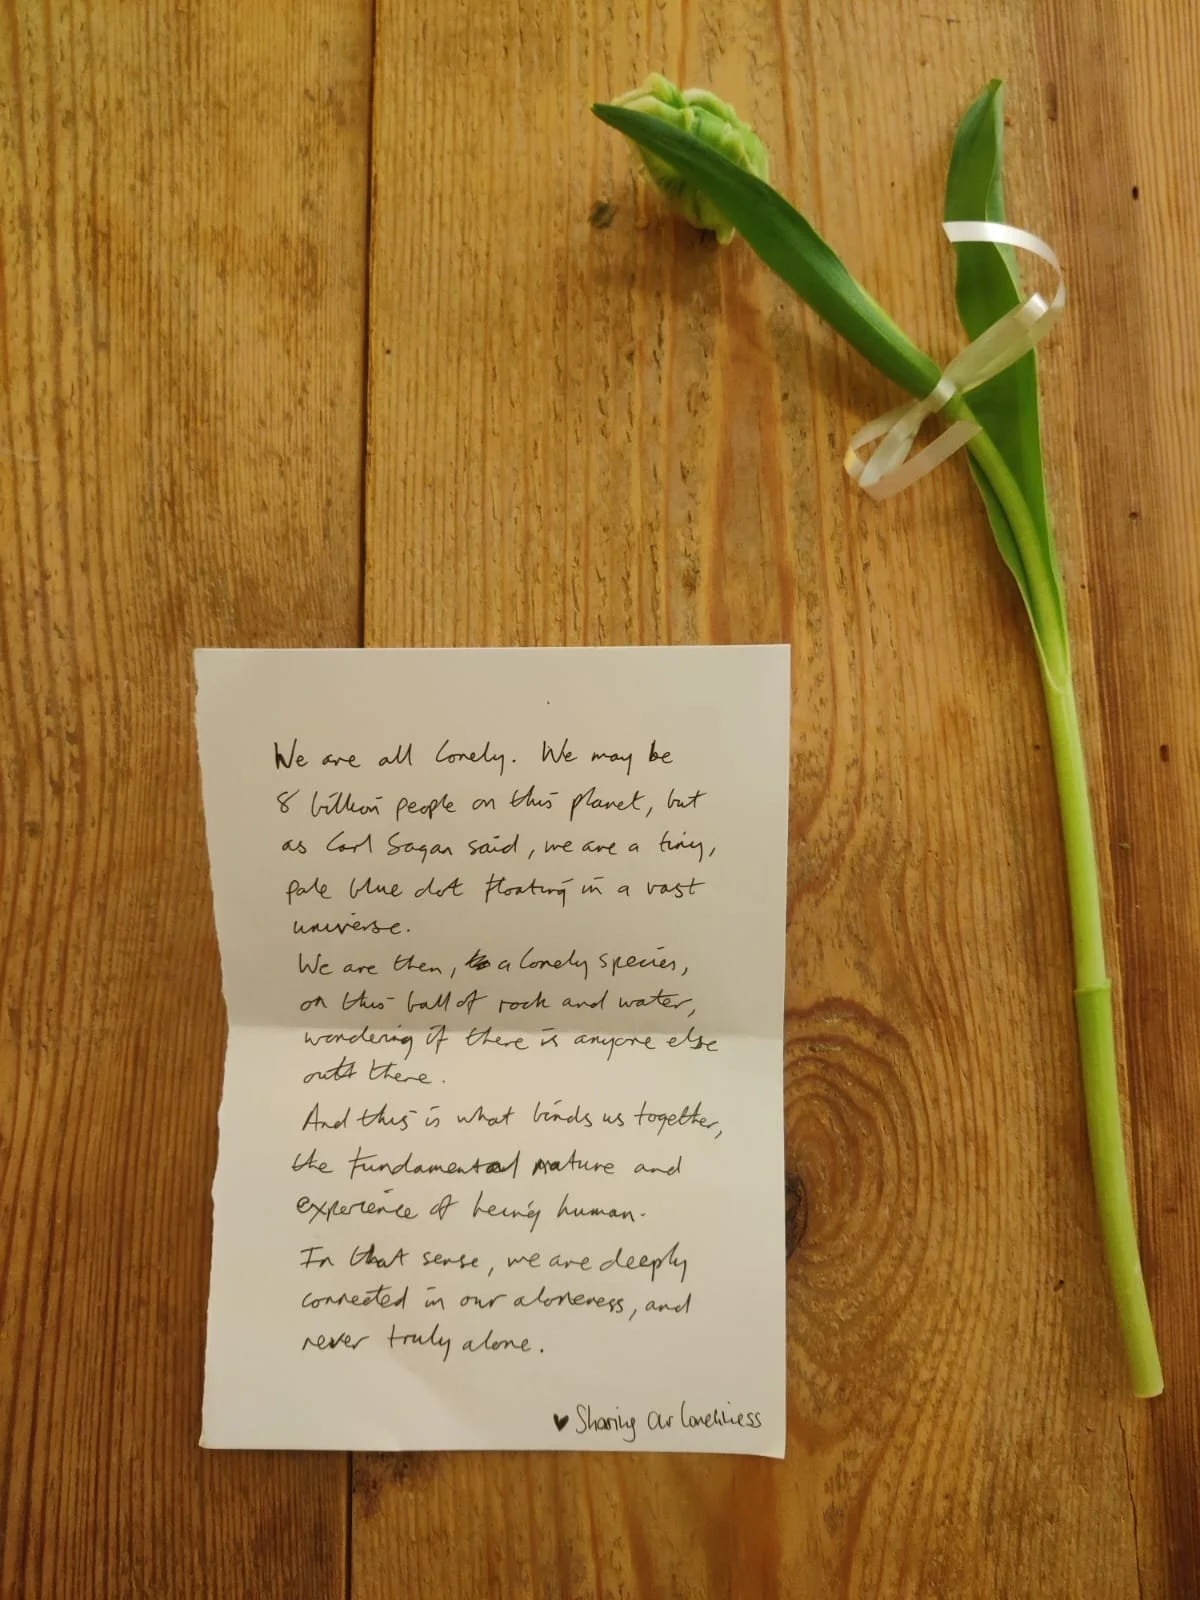 We are all lonely. We may be
8 billion people on this planet, but
as Carl Sagan said, we are a tiny,
pale blue dot floating in a vast
universe.
We are then, a lonely species,
on this ball of rock and water,
wondering if there is anyone else
out there.
And this is what binds us together,
the fundamental nature and
experience of being human.
In that sense, we are deeply
connected in our aloneness, and
never truly alone.
♥ Sharing Our Loneliness